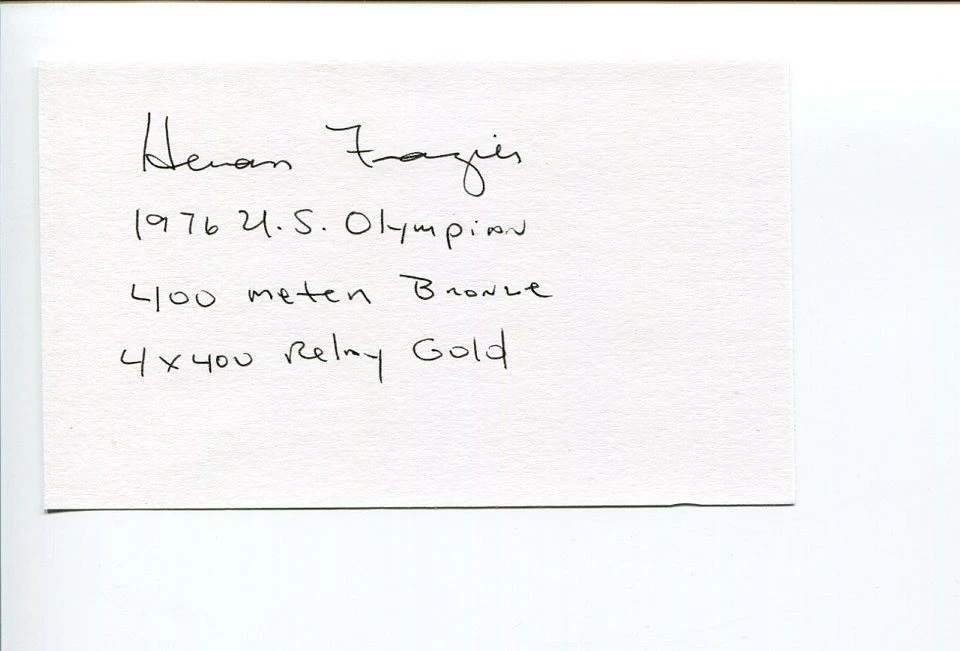 Herman Frazier
1976 U.S. Olympian
400 meter Bronze
4x400 Relay Gold